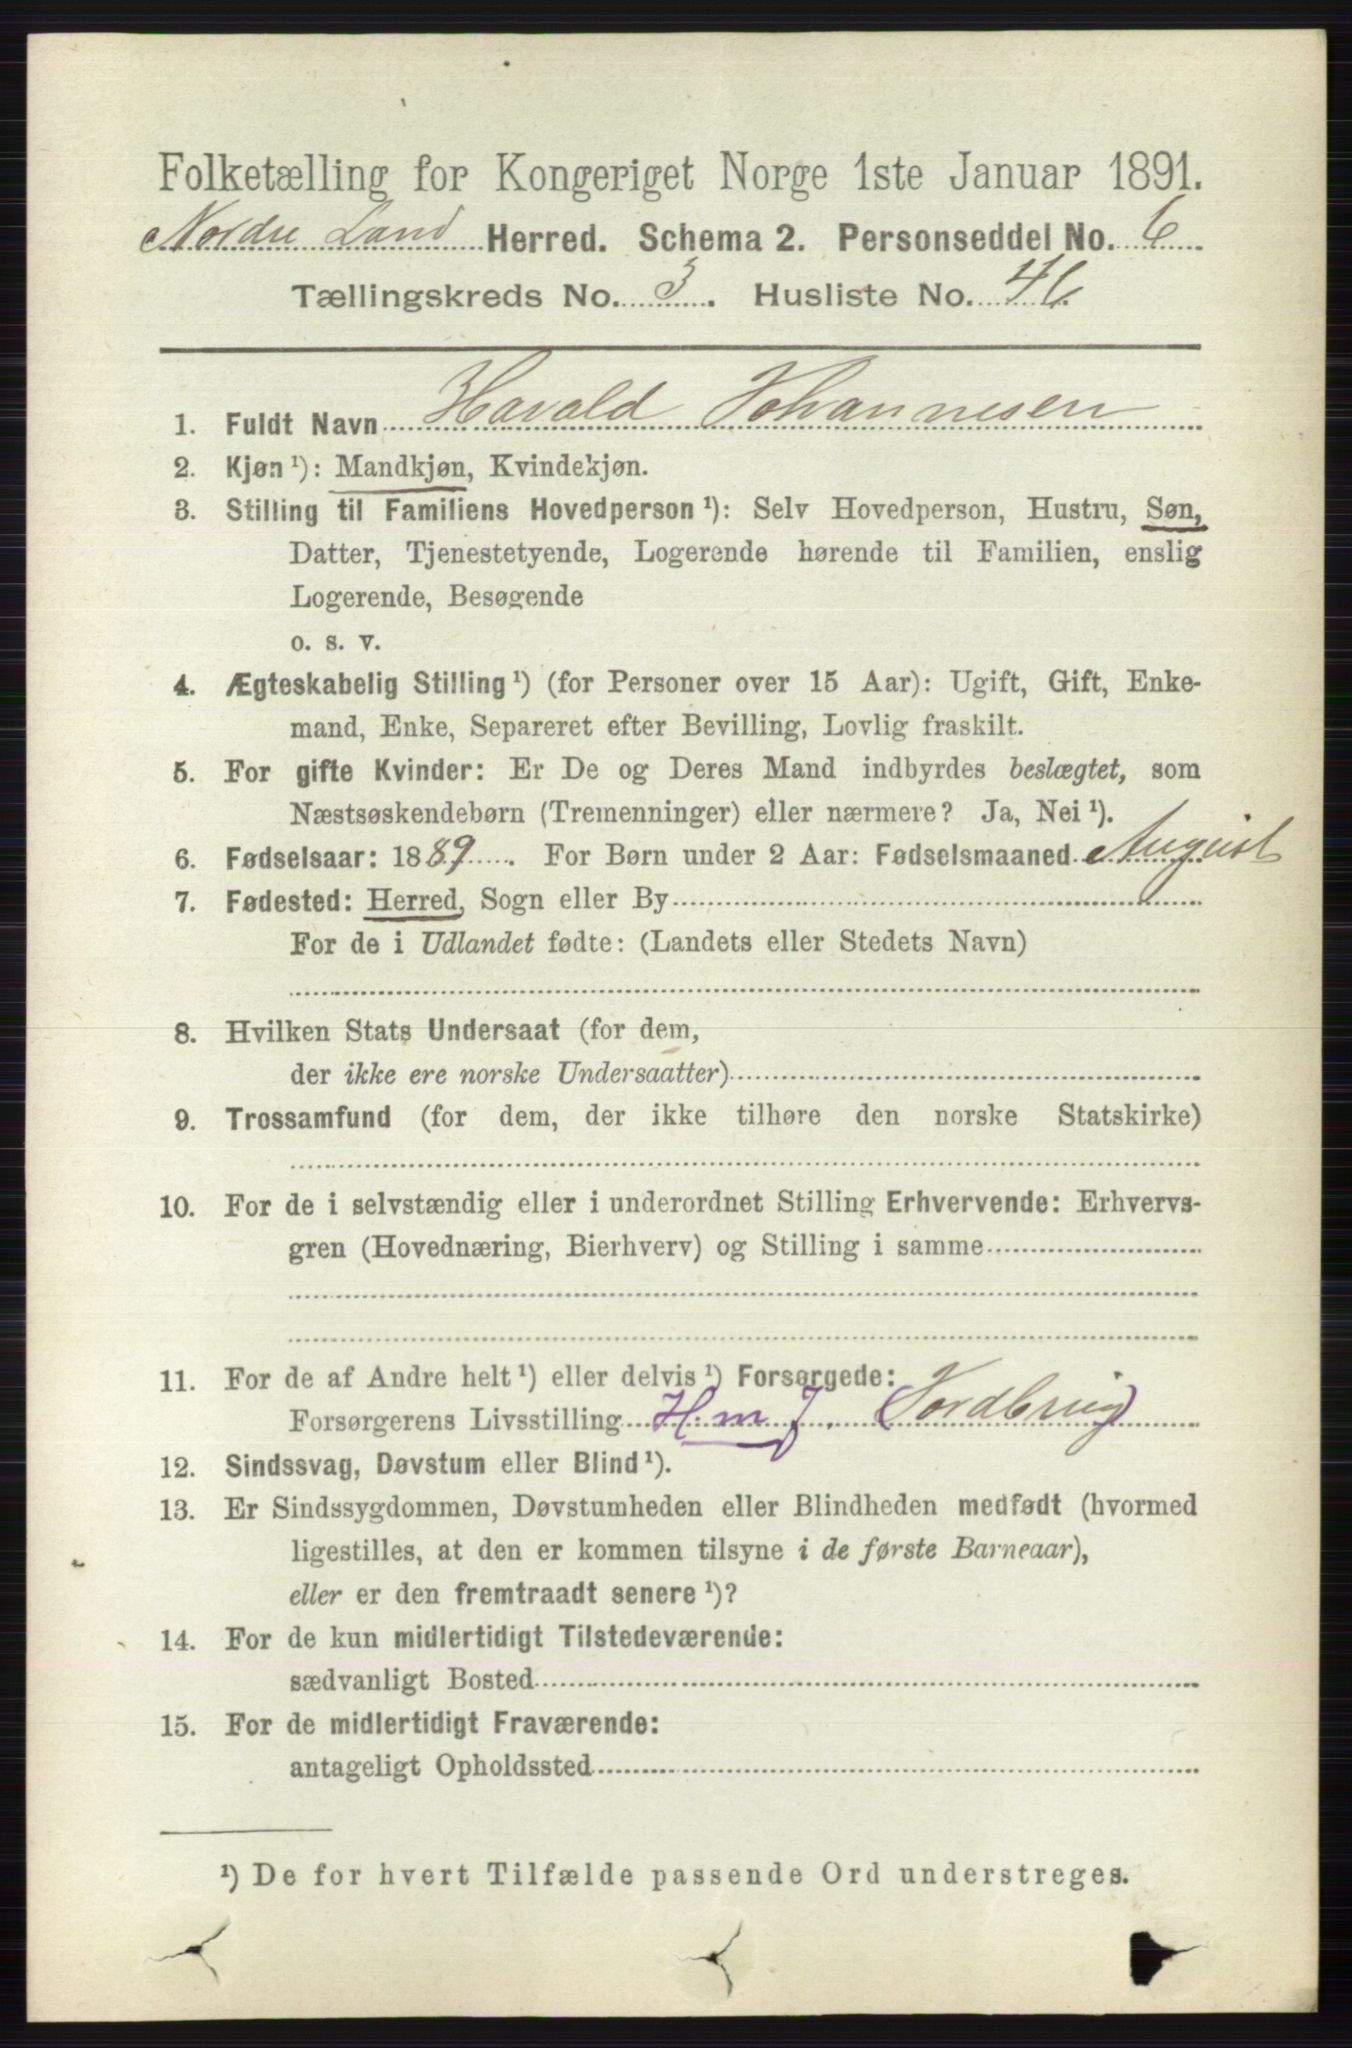 Folketælling for Kongeriget Norge 1ste Januar 1891.
Nordre Land Herred. Schema 2. Personseddel No. 6
Tællingskreds No. 3. Husliste No. 46.
1. Fuldt Navn Harald Johannesen
2. Kjøn ¹): Mandkjøn, Kvindekjøn.
3. Stilling til Familiens Hovedperson ¹): Selv Hovedperson, Hustru, Søn,
Datter, Tjenestetyende, Logerende hørende til Familien, enslig
Logerende, Besøgende
o. s. v.
4. Ægteskabelig Stilling ¹) (for Personer over 15 Aar): Ugift, Gift, Enke-
mand, Enke, Separeret efter Bevilling, Lovlig fraskilt.
5. For gifte Kvinder: Er De og Deres Mand indbyrdes beslægtet, som
Næstsøskendebørn (Tremenninger) eller nærmere? Ja, Nei ¹).
6. Fødselsaar: 1889. For Børn under 2 Aar: Fødselsmaaned August
7. Fødested: Herred, Sogn eller By
For de i Udlandet fødte: (Landets eller Stedets Navn)
8. Hvilken Stats Undersaat (for dem,
der ikke ere norske Undersaatter)
9. Trossamfund (for dem, der ikke tilhøre den norske Statskirke)
10. For de i selvstændig eller i underordnet Stilling Erhvervende: Erhvervs-
gren (Hovednæring, Bierhverv) og Stilling i samme
11. For de af Andre helt ¹) eller delvis ¹) Forsørgede:
Forsørgerens Livsstilling H. m J. (Jordbrug)
12. Sindssvag, Døvstum eller Blind ¹).
13. Er Sindssygdommen, Døvstumheden eller Blindheden medfødt (hvormed
ligestilles, at den er kommen tilsyne i de første Barneaar),
eller er den fremtraadt senere ¹)?
14. For de kun midlertidigt Tilstedeværende:
sædvanligt Bosted
15. For de midlertidigt Fraværende:
antageligt Opholdssted
¹) De for hvert Tilfælde passende Ord understreges.